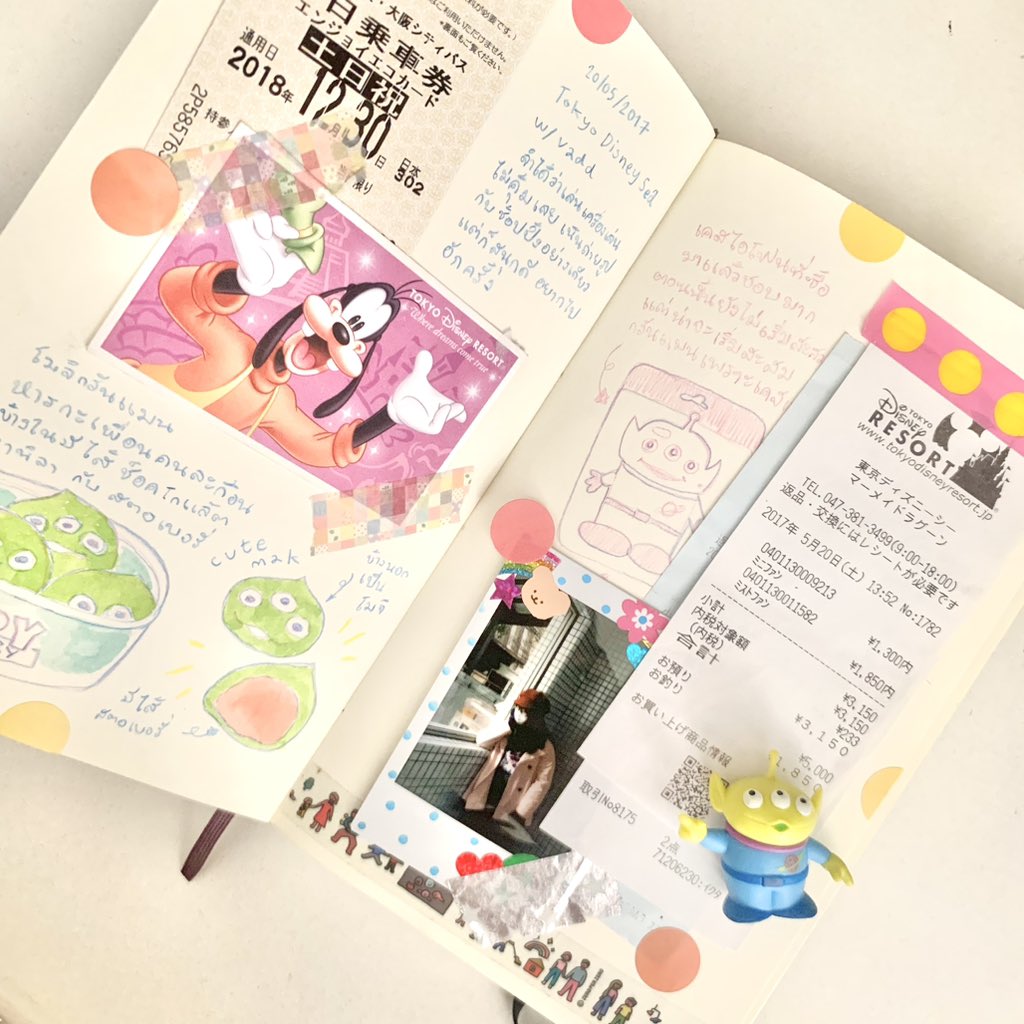 大阪シティバス
1日乗車券
エンジョイエコカード
土日祝
通用日
2018年
12
30
日
日本
302
2P58576
持参
TOKYO DISNEY RESORT
Where dreams come true
20/05/2017
Tokyo Disney Sea
w/ vadd
จำได้ว่าเล่นเครื่องเล่น
ไม่คุ้มเลย เน้นถ่ายรูป
กับช้อปปิ้งอย่างเดียว
แต่ก็สนุกดี อยากไป
อีกครั้ง
หารกะเพื่อนคนละก้อน
ข้างในไส้ช็อคโกแล็ต
กับ สตอเบอร์รี่
cute
mak
ข้างนอก
เป็น
โมจิ
มีไส้
สตอเบอร์รี่
เคสไอโฟนที่ซื้อ
มาแล้วชอบมาก
ตอนนั้นยังไม่เริ่มสะสม
แต่น่าจะเริ่มสะสม
TOKYO
DISNEY
RESORT
www.tokyodisneyresort.jp
東京ディズニーシー
マーメイドラグーン
TEL.047-381-3499(9:00-18:00)
返品・交換にはレシートが必要です
2017年 5月20日(土) 13:52 No:1782
0401130009213
ミニファン ¥1,300円
0401130011582
ミストファン ¥1,850円
小計 ¥3,150
内税対象額 ¥3,150
(内税) ¥233
合計 ¥3,150
お預り ¥5,000
お釣り ¥1,850
お買い上げ商品情報
取引No8175
2点
71206230:イクタ